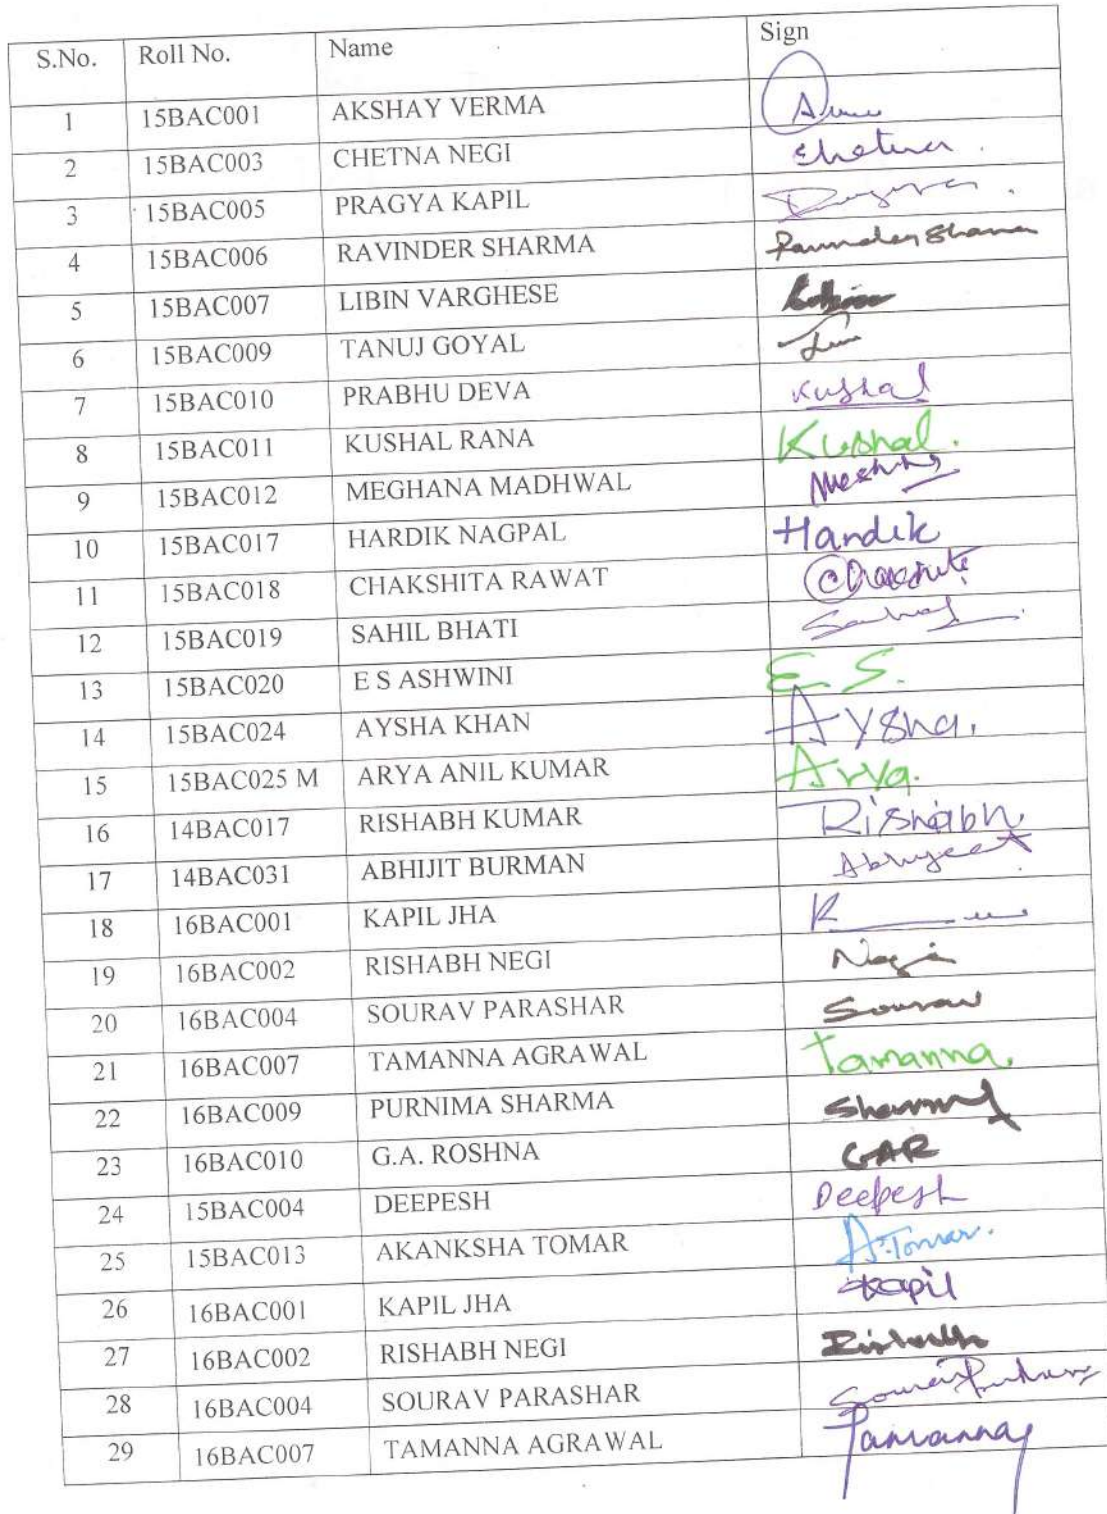 S.No. Roll No. Name Sign
1 15BAC001 AKSHAY VERMA
2 15BAC003 CHETNA NEGI Chetna.
3 15BAC005 PRAGYA KAPIL
4 15BAC006 RAVINDER SHARMA Ravinder Sharma
5 15BAC007 LIBIN VARGHESE
6 15BAC009 TANUJ GOYAL
7 15BAC010 PRABHU DEVA Kushal
8 15BAC011 KUSHAL RANA Kushal.
9 15BAC012 MEGHANA MADHWAL
10 15BAC017 HARDIK NAGPAL Hardik
11 15BAC018 CHAKSHITA RAWAT
12 15BAC019 SAHIL BHATI
13 15BAC020 E S ASHWINI E S.
14 15BAC024 AYSHA KHAN Aysha.
15 15BAC025 M ARYA ANIL KUMAR Arya.
16 14BAC017 RISHABH KUMAR Rishabh
17 14BAC031 ABHIJIT BURMAN Abhijeet
18 16BAC001 KAPIL JHA
19 16BAC002 RISHABH NEGI Negi
20 16BAC004 SOURAV PARASHAR Sourav
21 16BAC007 TAMANNA AGRAWAL Tamanna.
22 16BAC009 PURNIMA SHARMA
23 16BAC010 G.A. ROSHNA GAR
24 15BAC004 DEEPESH Deepesh
25 15BAC013 AKANKSHA TOMAR A.Tomar.
26 16BAC001 KAPIL JHA Kapil
27 16BAC002 RISHABH NEGI Rishabh
28 16BAC004 SOURAV PARASHAR
29 16BAC007 TAMANNA AGRAWAL Tamanna